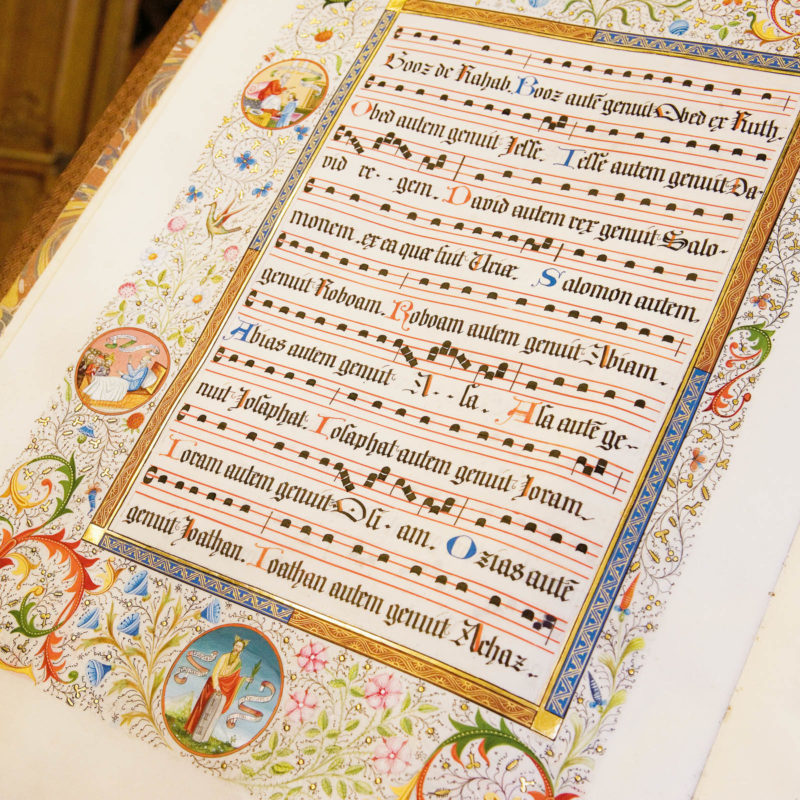 Booz de Rahab. Booz autē genuit Obed ex Ruth.
Obed autem genuit Jesse. Jesse autem genuit Da-
vid re-- gem. David autem rex genuit Salo-
monem, ex ea quæ fuit Uriæ. Salomon autem
genuit Roboam. Roboam autem genuit Abiam.
Abias autem genuit A-- sa. Asa autē ge-
nuit Josaphat. Josaphat autem genuit Joram.
Joram autem genuit Osi- am. Ozias autē
genuit Joathan. Joathan autem genuit Achaz.